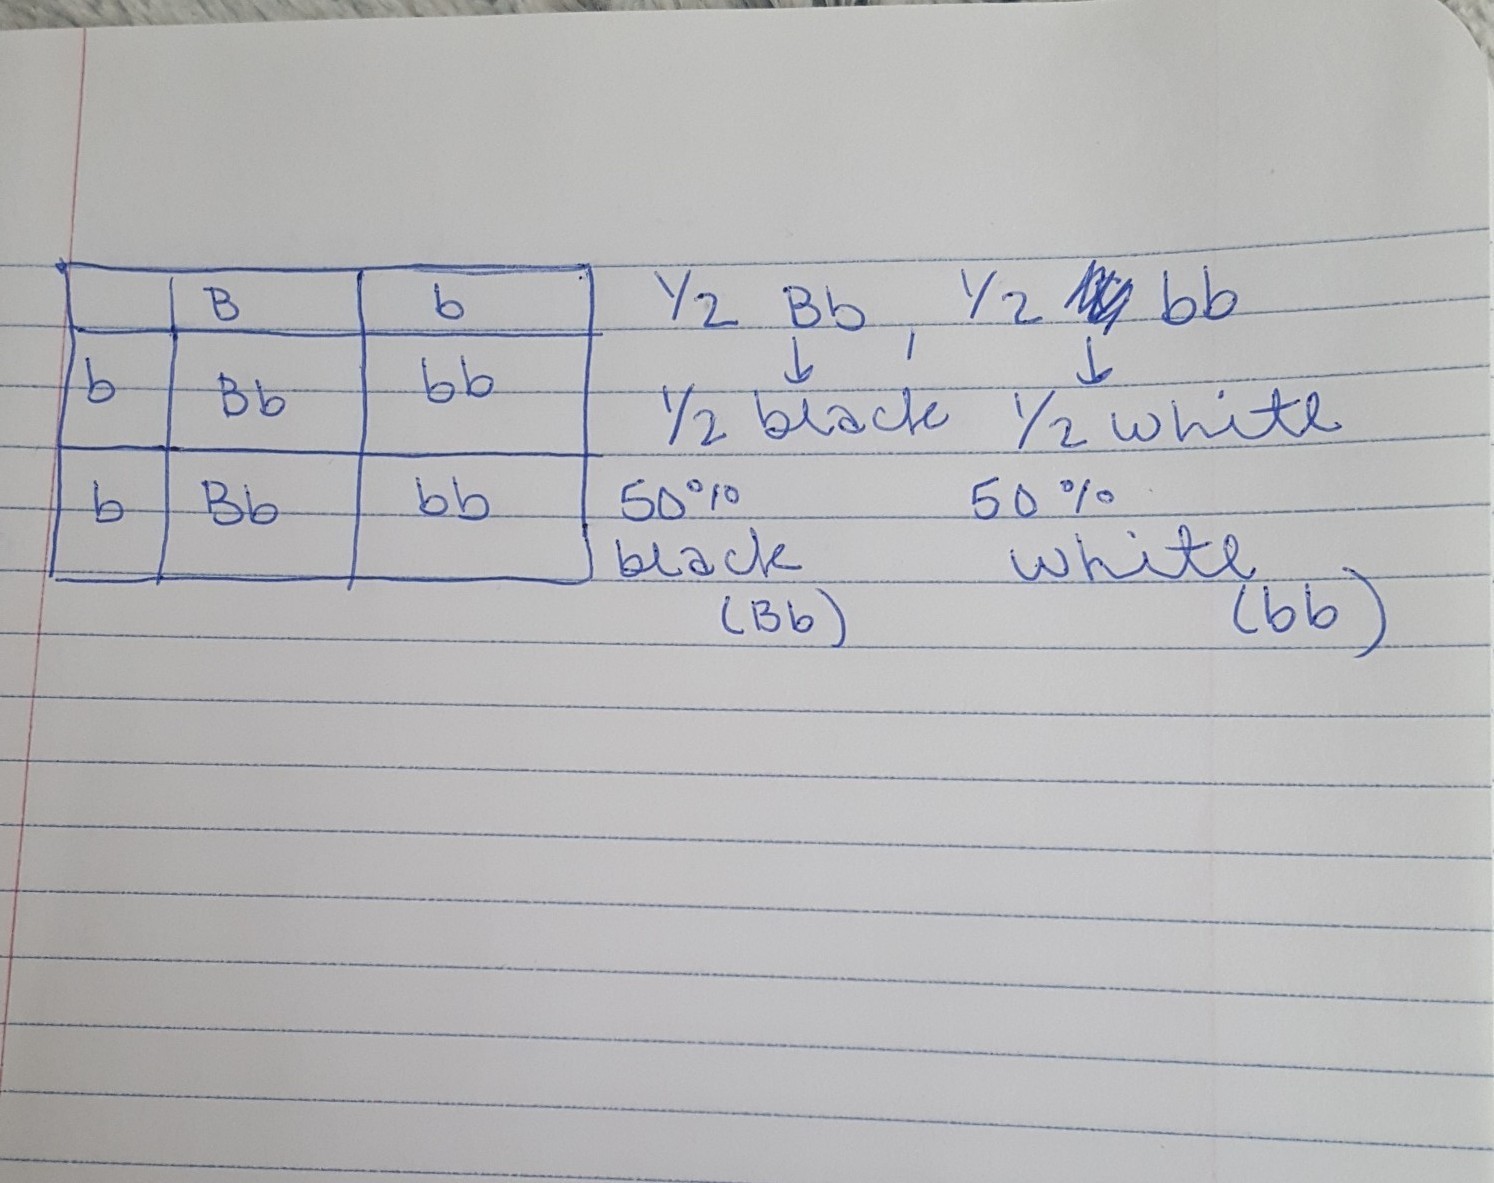 B b
b Bb bb
b Bb bb
1/2 Bb , 1/2 bb
↓ ↓
1/2 black 1/2 white
50% 50%
black white
(Bb) (bb)